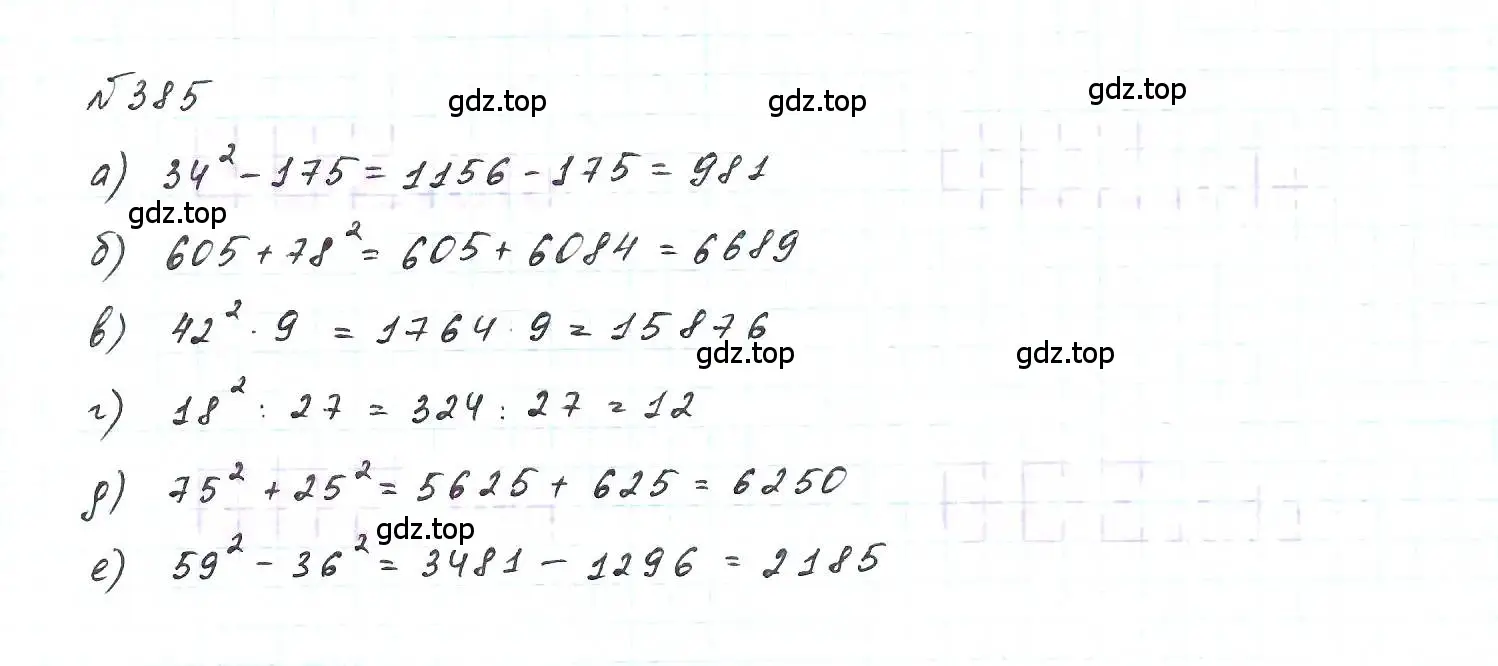 №385
gdz.top gdz.top gdz.top
а) 34² - 175 = 1156 - 175 = 981
gdz.top
б) 605 + 78² = 605 + 6084 = 6689
в) 42² · 9 = 1764 · 9 = 15876
gdz.top gdz.top
г) 18² : 27 = 324 : 27 = 12
д) 75² + 25² = 5625 + 625 = 6250
gdz.top
е) 59² - 36² = 3481 - 1296 = 2185